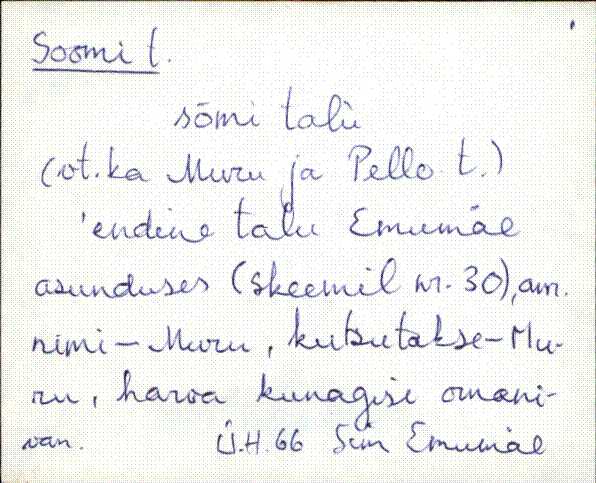 Soomi t.
sōmi talù
(vt. ka Muru ja Pello t.)
'endine talu Emumäe
asunduses (skeemil nr. 30), am.
nimi – Muru, kutsutakse – Mu-
ru, harva kunagise omani-
Ü.H. 66 Sim Emumäe